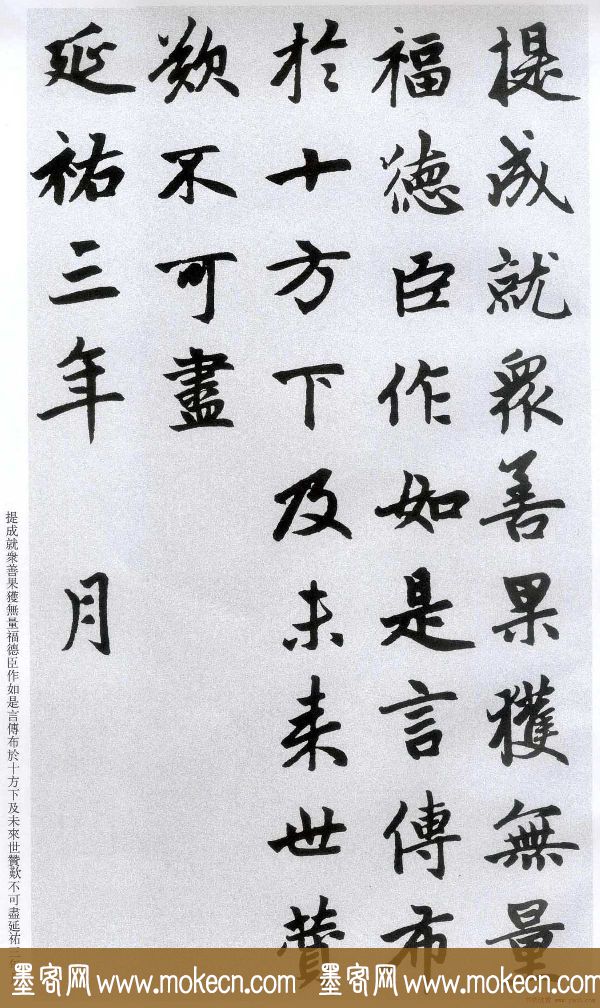 提成就衆善果獲無量
福德臣作如是言傳布
於十方下及未来世賛
歎不可盡
延祐三年 月
提成就衆善果獲無量福德臣作如是言傳布於十方下及未來世贊歎不可盡延祐三
墨客网 www.mokecn.com 墨客网 www.mokecn.com